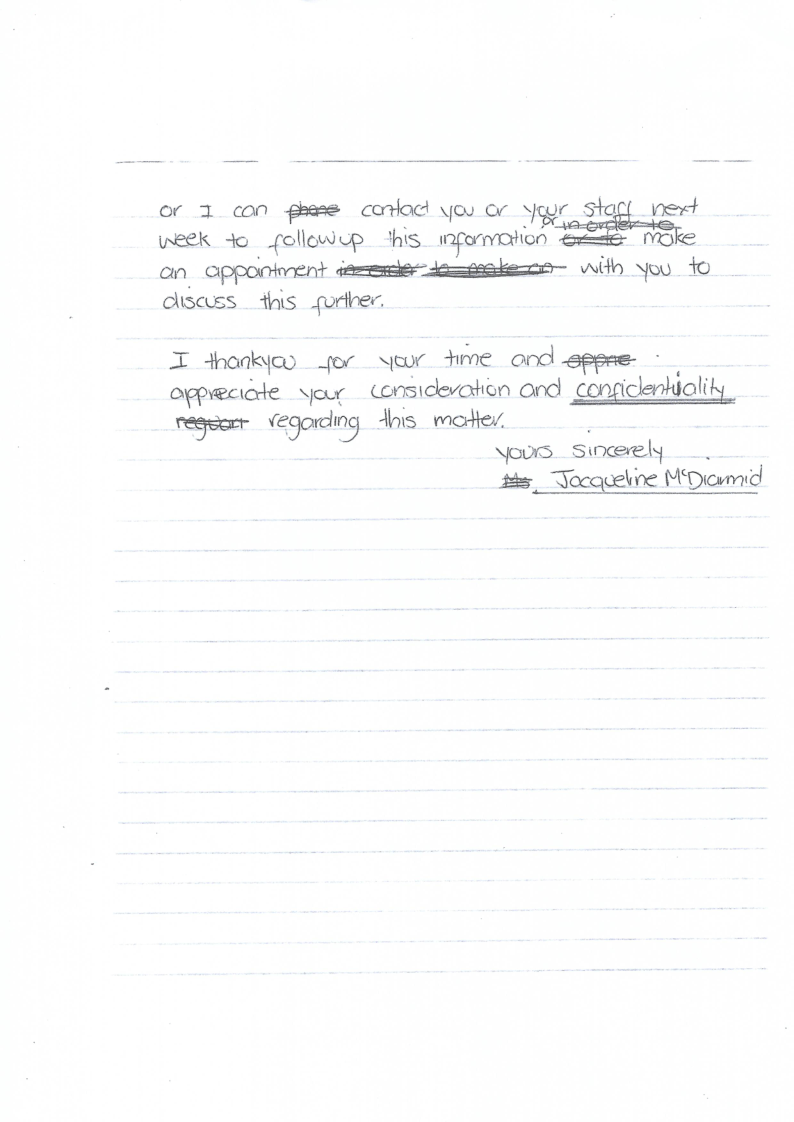 or I can ~~phone~~ contact you or your staff next
or ~~in order to~~
week to followup this information ~~or to~~ make
an appointment ~~in order to make an~~ with you to
discuss this further.
I thankyou for your time and ~~appre~~
appreciate your consideration and confidentuality
regarding this matter.
yours sincerely
~~Ms~~ Jacqueline McDiarmid